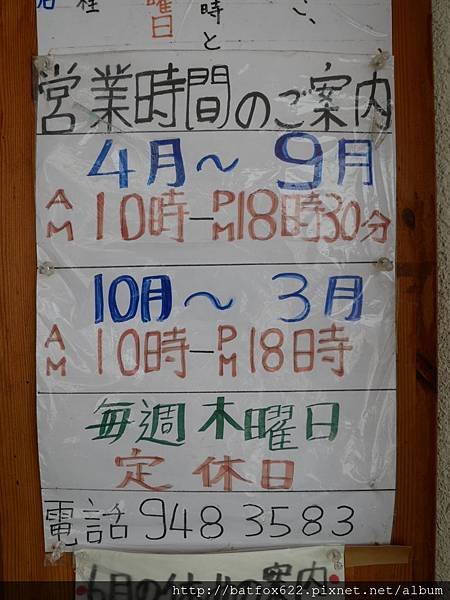 時と
曜日
程
営業時間のご案内
4月～9月
AM10時－PM18時30分
10月～3月
AM10時－PM18時
毎週木曜日
定休日
電話9483583
6月の
の案内
http://batfox622.pixnet.net/album